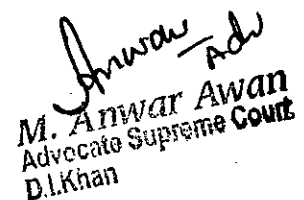 Anwar Adv
M. Anwar Awan
Advocate Supreme Court
D.I.Khan